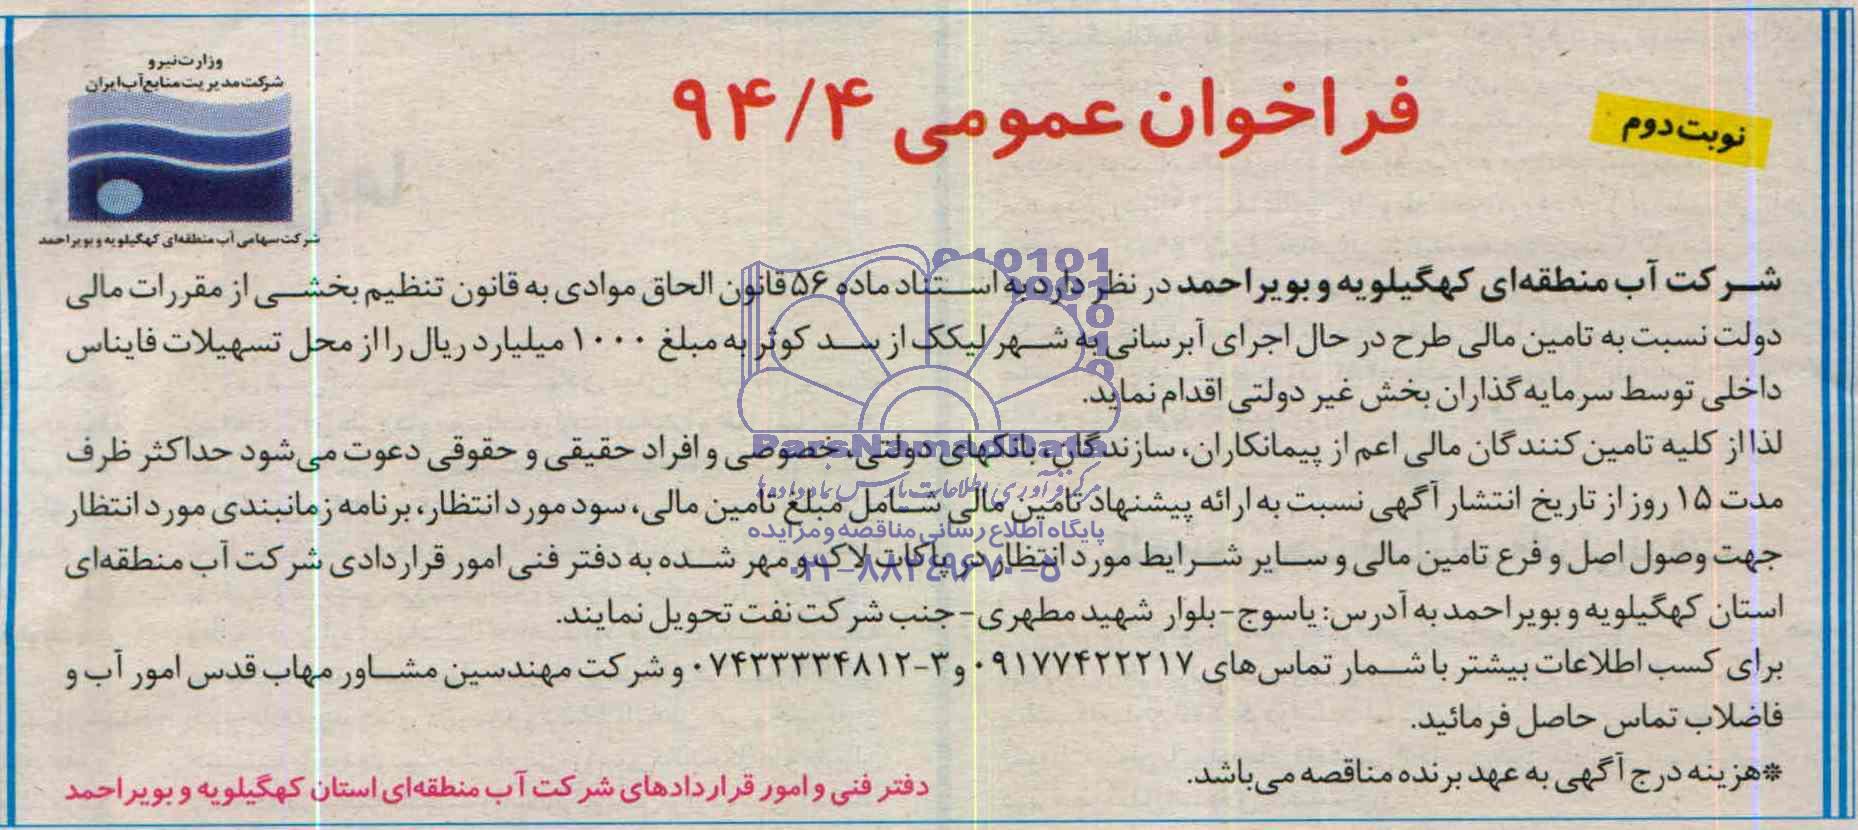 وزارت نیرو
شرکت مدیریت منابع آب ایران
شرکت سهامی آب منطقه‌ای کهگیلویه و بویراحمد
نوبت دوم
فراخوان عمومی ۹۴/۴
شرکت آب منطقه‌ای کهگیلویه و بویراحمد در نظر دارد به استناد ماده ۵۶ قانون الحاق موادی به قانون تنظیم بخشی از مقررات مالی
دولت نسبت به تامین مالی طرح در حال اجرای آبرسانی به شهر لیکک از سد کوثر به مبلغ ۱۰۰۰ میلیارد ریال را از محل تسهیلات فایناس
داخلی توسط سرمایه گذاران بخش غیر دولتی اقدام نماید.
لذا از کلیه تامین کنندگان مالی اعم از پیمانکاران، سازندگان، بانکهای دولتی، خصوصی و افراد حقیقی و حقوقی دعوت می‌شود حداکثر ظرف
مدت ۱۵ روز از تاریخ انتشار آگهی نسبت به ارائه پیشنهاد تامین مالی شامل مبلغ تامین مالی، سود مورد انتظار، برنامه زمانبندی مورد انتظار
جهت وصول اصل و فرع تامین مالی و سایر شرایط مورد انتظار در پاکات لاک و مهر شده به دفتر فنی امور قراردادی شرکت آب منطقه‌ای
استان کهگیلویه و بویراحمد به آدرس: یاسوج- بلوار شهید مطهری- جنب شرکت نفت تحویل نمایند.
برای کسب اطلاعات بیشتر با شمار تماس‌های ۰۹۱۷۷۴۲۲۲۱۷ و ۳-۰۷۴۳۳۳۳۴۸۱۲ و شرکت مهندسین مشاور مهاب قدس امور آب و
فاضلاب تماس حاصل فرمائید.
*هزینه درج آگهی به عهد برنده مناقصه می‌باشد.
دفتر فنی و امور قراردادهای شرکت آب منطقه‌ای استان کهگیلویه و بویراحمد
ParsNamadData
مرکز فرآوری اطلاعات پارس نماد داده‌ها
پایگاه اطلاع رسانی مناقصه و مزایده
۰۲۱-۸۸۳۴۹۶۷۰-۵